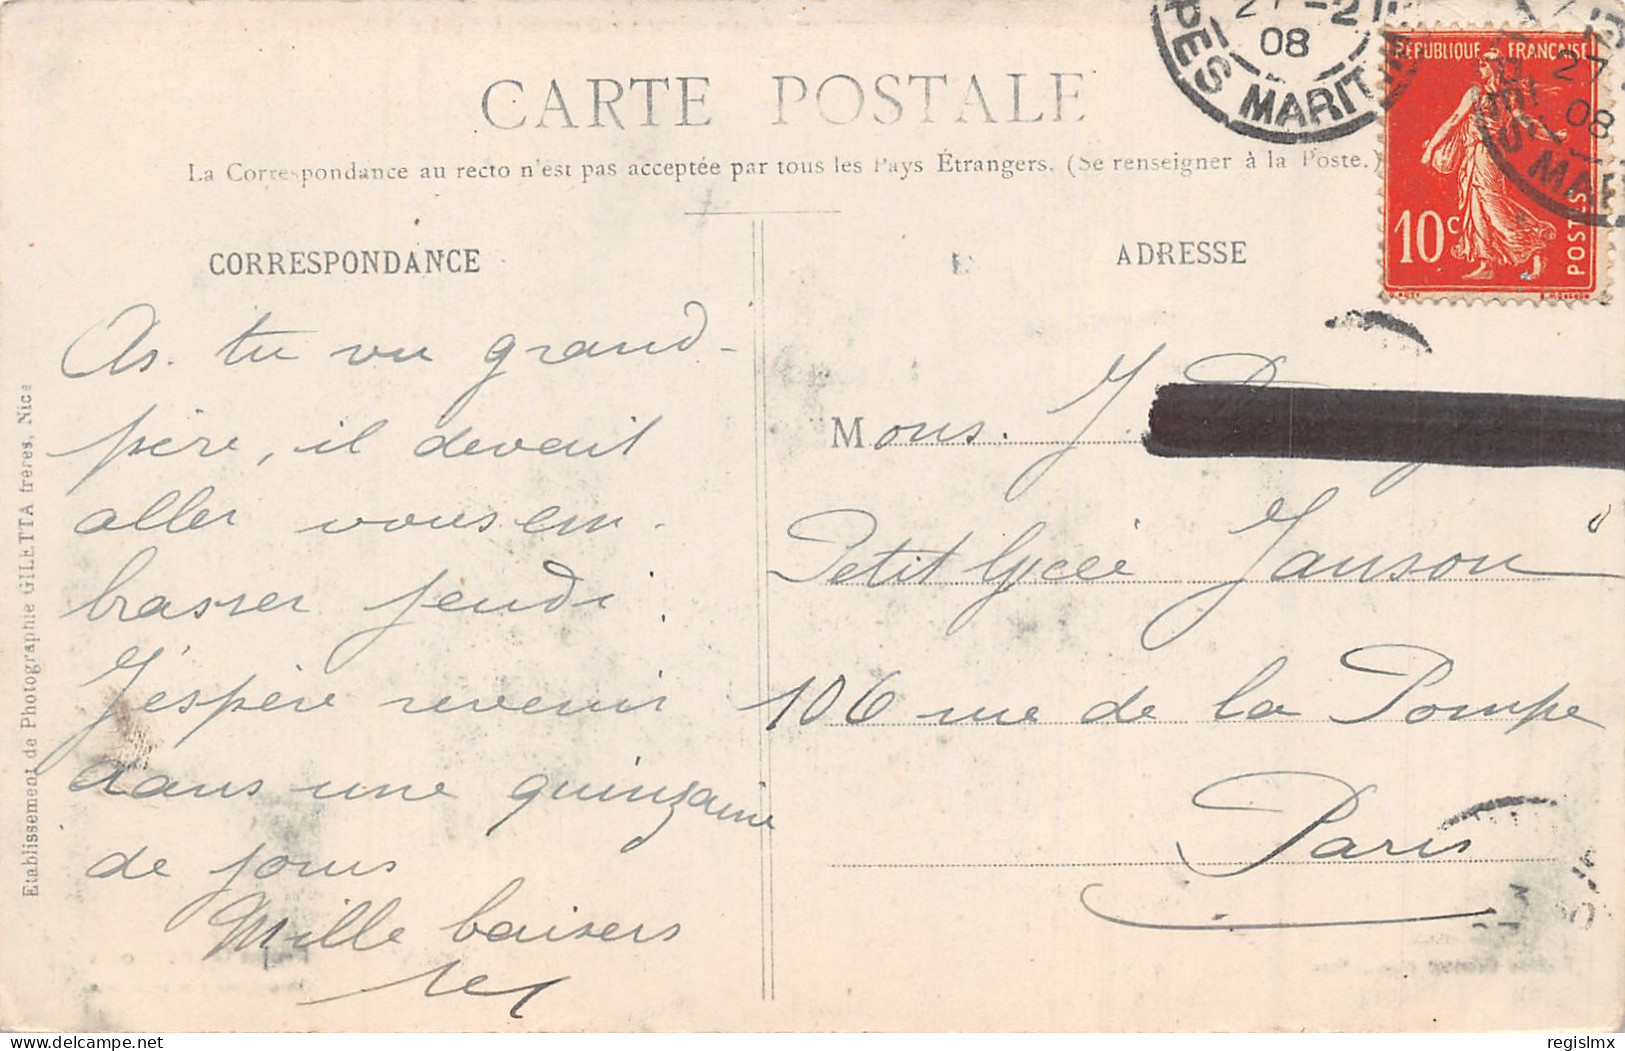 CARTE POSTALE
La Correspondance au recto n'est pas acceptée par tous les Pays Étrangers. (Se renseigner à la Poste.)
CORRESPONDANCE
As-tu vu grand-
père, il devait
aller vous em-
brasser jeudi.
J'espère revenir
dans une quinzaine
de jours
Mille baisers
ADRESSE
Mons. J.
Petit lycée Janson
106 rue de la Pompe
Paris
RÉPUBLIQUE FRANÇAISE
10c
POSTES
08
PES MARIT
27
08
ES MAR
Etablissement de Photographie GILETTA frères, Nice
regislmx